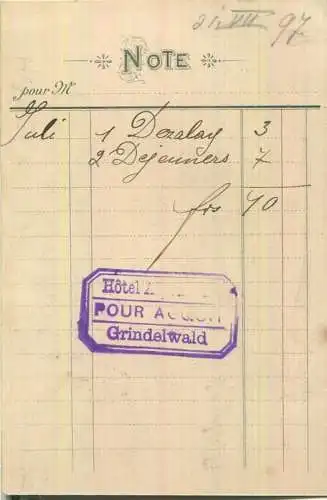 21. VII 97
NOTE
pour Mr
Juli 1 Dezalay 3
2 Dejeuners 7
frs 10
Hôtel
POUR ACQUIT
Grindelwald